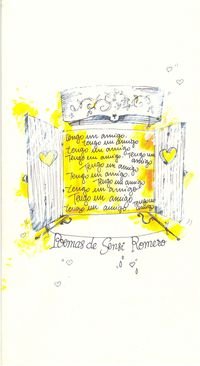 Tengo un amigo.
Tengo un amigo
Tengo un amigo
Tengo un amigo. Tengo un amigo
Tengo un amigo
Tengo un amigo.
Tengo un amigo
Tengo un amigo.
Tengo un amigo
Tengo un amigo Tengo un amigo
Poemas de Sense Romero